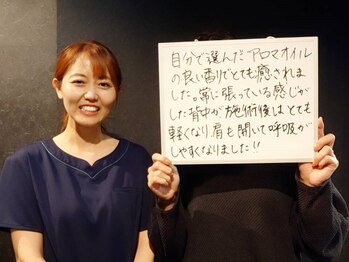 自分で選んだアロマオイル
の良い香りでとても癒されま
した。常に張っている感じがし
た背中が施術後はとても
軽くなり肩も開いて呼吸が
しやすくなりました!!